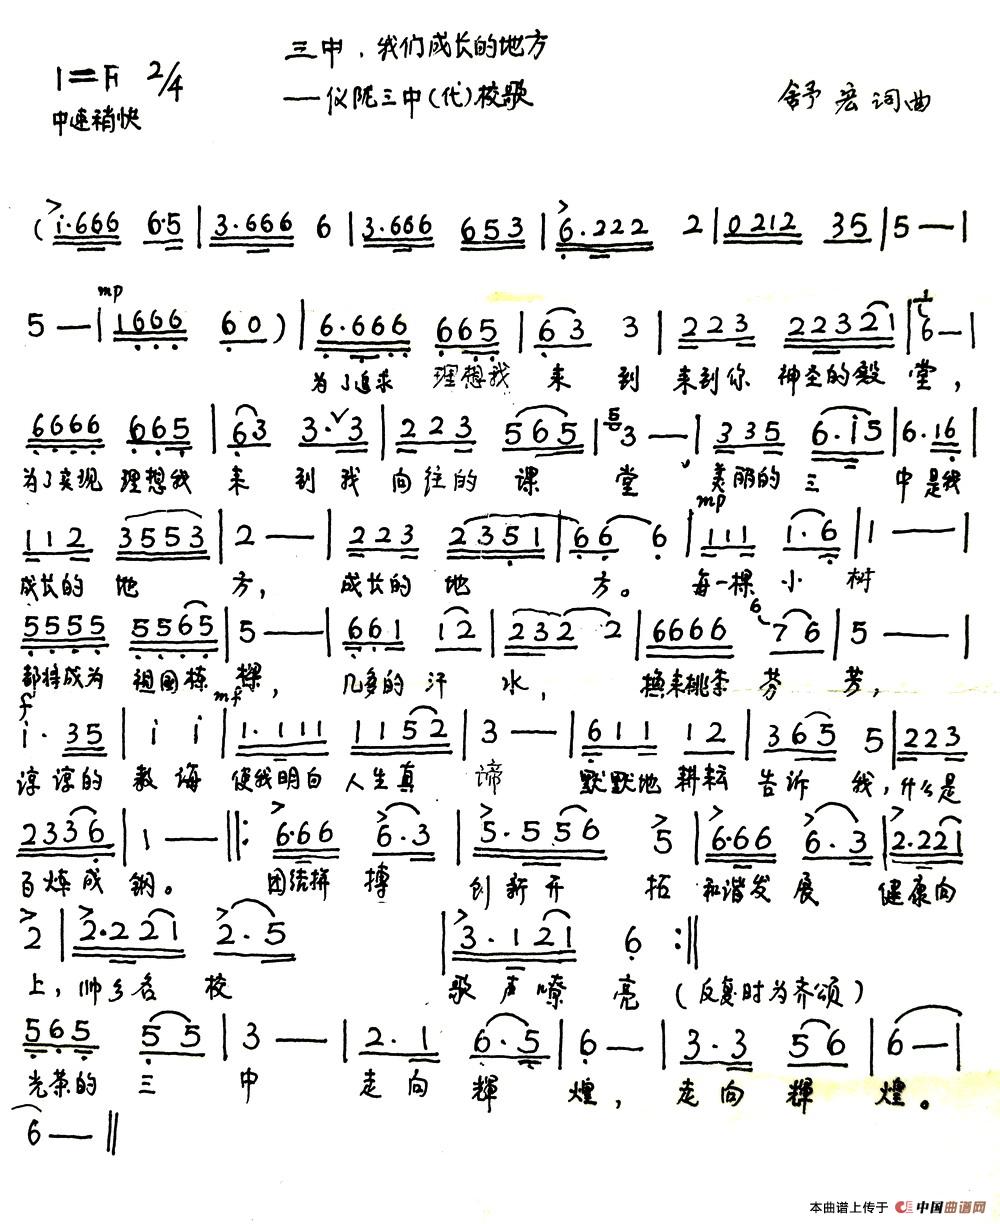 三中，我们成长的地方
1=F 2/4
——仪陇三中(代)校歌
舒宏词曲
中速稍快
(i·666 6·5 | 3·666 6 | 3·666 653 | 6·222 2 | 0212 35 | 5 — |
mp
5 — | 1666 60) | 6·666 665 | 63 3 | 223 22321 | 6 — |
为了追求 理想我 来 到 来到你 神圣的殿 堂，
6666 665 | 63 3·3 | 223 565 | 3 — | 335 6·i5 | 6·16 |
为了实现 理想我 来 到我 向往的 课 堂 美丽的 三 中 是我
mp
112 3553 | 2 — | 223 2351 | 66 6 | 111 1·6 | 1 — |
成长的 地 方， 成长的 地 方。 每一棵 小 树
5555 5565 | 5 — | 661 12 | 232 2 | 6666 76 | 5 — |
都将成为 祖国栋 樑， 几多的 汗 水， 换来桃李 芬 芳，
f mf
i· 35 | i i | 1·111 1152 | 3 — | 611 12 | 365 5 | 223
谆 谆的 教 诲 使我明白 人生真 谛 默默地 耕耘 告诉 我，什么是
2336 | 1 — ‖: 6·66 6·3 | 5·556 5 | 6·66 6·3 | 2·221
百炼成 钢。 团结拼 搏 创新开 拓 和谐发 展 健康向
2 | 2·221 2·5 | 3·121 6 :‖
上，帅乡名 校 歌声嘹 亮 (反复时为齐颂)
565 55 | 3 — | 2·1 6·5 | 6 — | 3·3 56 | 6 — |
光荣的 三 中 走向 輝 煌， 走向 輝 煌。
6 — ‖
本曲谱上传于 中国曲谱网